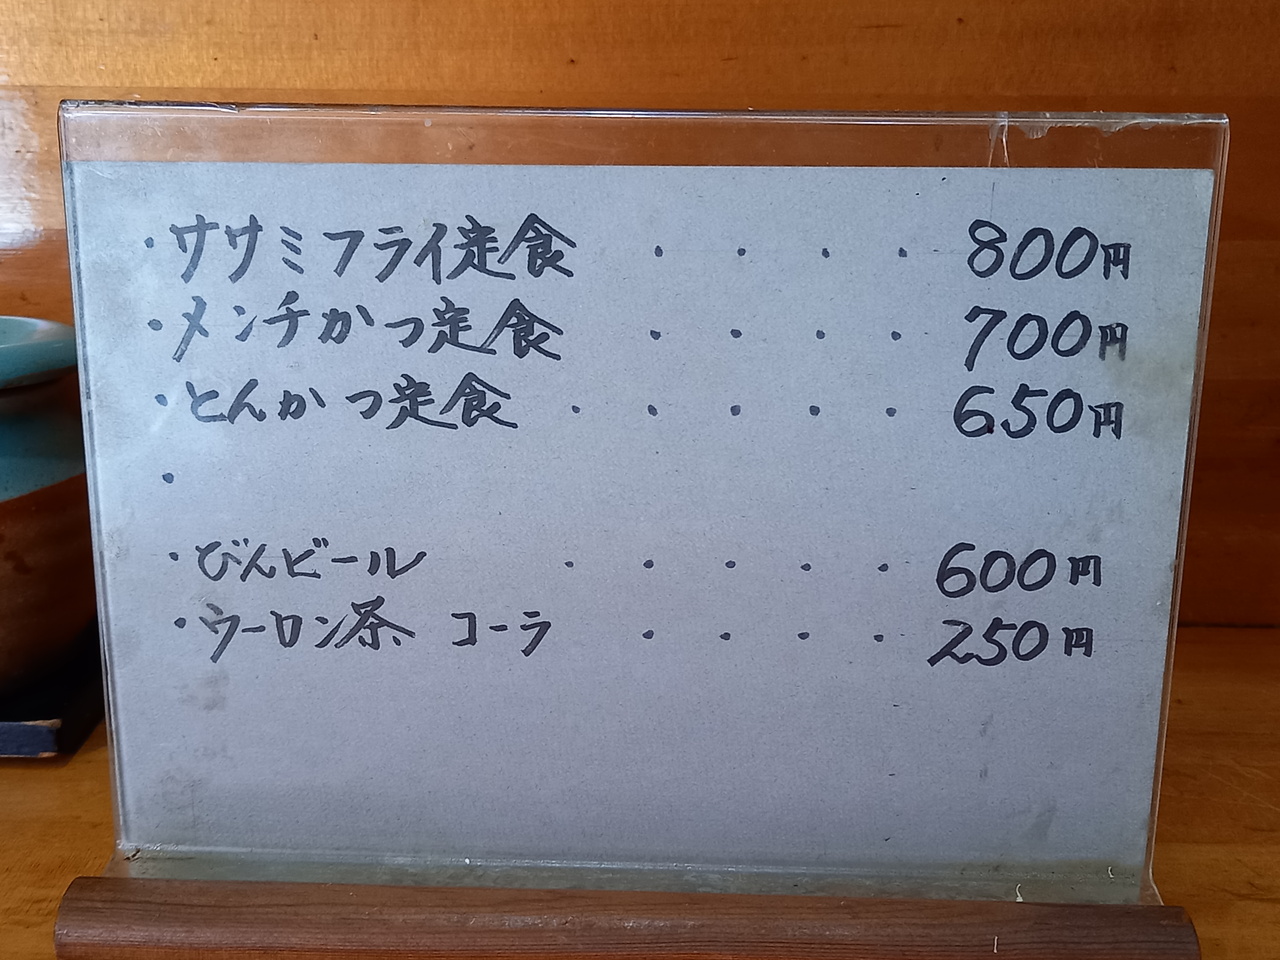 ・ササミフライ定食 ・・・・ 800円
・メンチかつ定食 ・・・・ 700円
・とんかつ定食 ・・・・・ 650円
・
・びんビール ・・・・・ 600円
・ウーロン茶 コーラ ・・・・ 250円